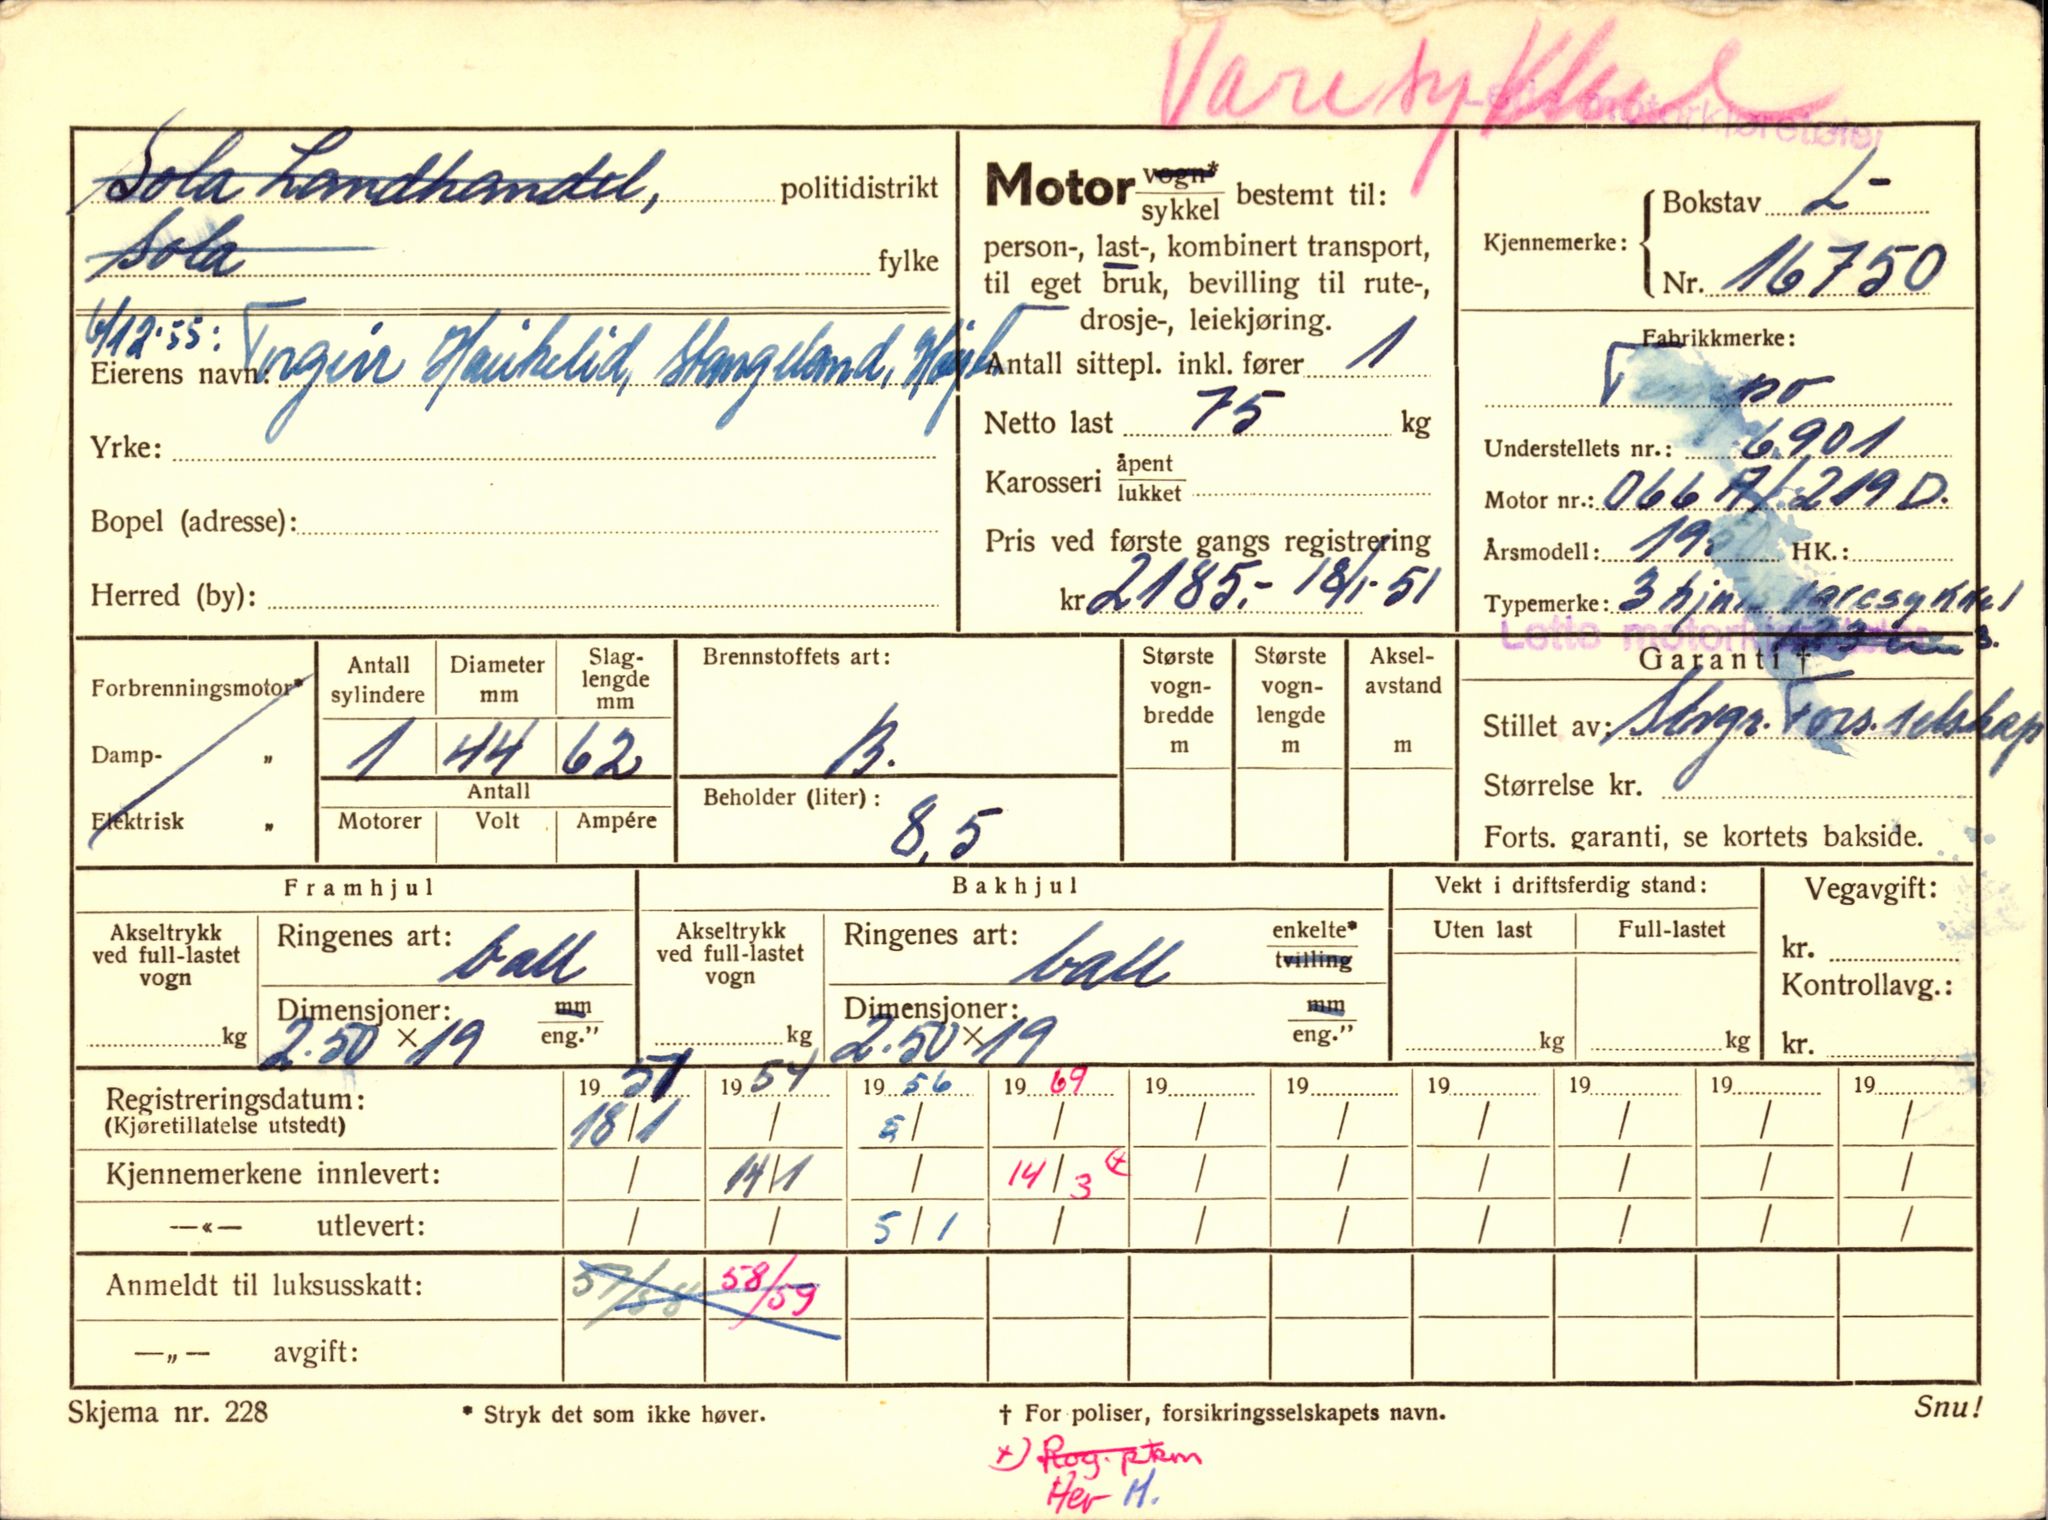 Varesykkel
Lette motorkjøretøier
Sola Landhandel, politidistrikt
Sola fylke
6/12.55: Torgeir Haukelid, Stangeland,
Eierens navn:
Yrke:
Bopel (adresse):
Herred (by):
Motor vogn* / sykkel bestemt til:
person-, last-, kombinert transport,
til eget bruk, bevilling til rute-,
drosje-, leiekjøring.
Antall sittepl. inkl. fører 1
Netto last 75 kg
Karosseri åpent / lukket
Pris ved første gangs registrering
kr 2185.- 18/1-51
Kjennemerke: Bokstav L-
Nr. 16750
Fabrikkmerke:
Tempo
Understellets nr.: 6901
Motor nr.: 066 A/ 219 D.
Årsmodell: 19 HK.:
Typemerke: 3 hjuls varesykkel
Lette motorkjøretøier
Forbrenningsmotor*
Damp- „
Elektrisk „
Antall sylindere Diameter mm Slag-lengde mm
1 44 62
Antall
Motorer Volt Ampére
Brennstoffets art:
B.
Beholder (liter):
8,5
Største vogn-bredde m Største vogn-lengde m Aksel-avstand m
Garanti †
Stillet av: Storgr. Fors. selskap
Størrelse kr.
Forts. garanti, se kortets bakside.
Framhjul
Akseltrykk ved full-lastet vogn kg
Ringenes art: ball
Dimensjoner: mm / eng.”
2.50 × 19
Bakhjul
Akseltrykk ved full-lastet vogn kg
Ringenes art: ball enkelte* / tvilling
Dimensjoner: mm / eng.”
2.50 × 19
Vekt i driftsferdig stand:
Uten last Full-lastet
kg kg
Vegavgift:
kr.
Kontrollavg.:
kr.
19 51 19 54 19 56 19 69 19 19 19 19 19 19
Registreringsdatum: 18/1 / 5/ / / / / / / /
(Kjøretillatelse utstedt)
Kjennemerkene innlevert: / 14/1 / 14/3 +) / / / / / /
—«— utlevert: / / 5/1 / / / / / / /
Anmeldt til luksusskatt: 57/58 58/59
—„— avgift:
Skjema nr. 228 * Stryk det som ikke høver. † For poliser, forsikringsselskapets navn. Snu!
+) Rog. ptkm
Her H.